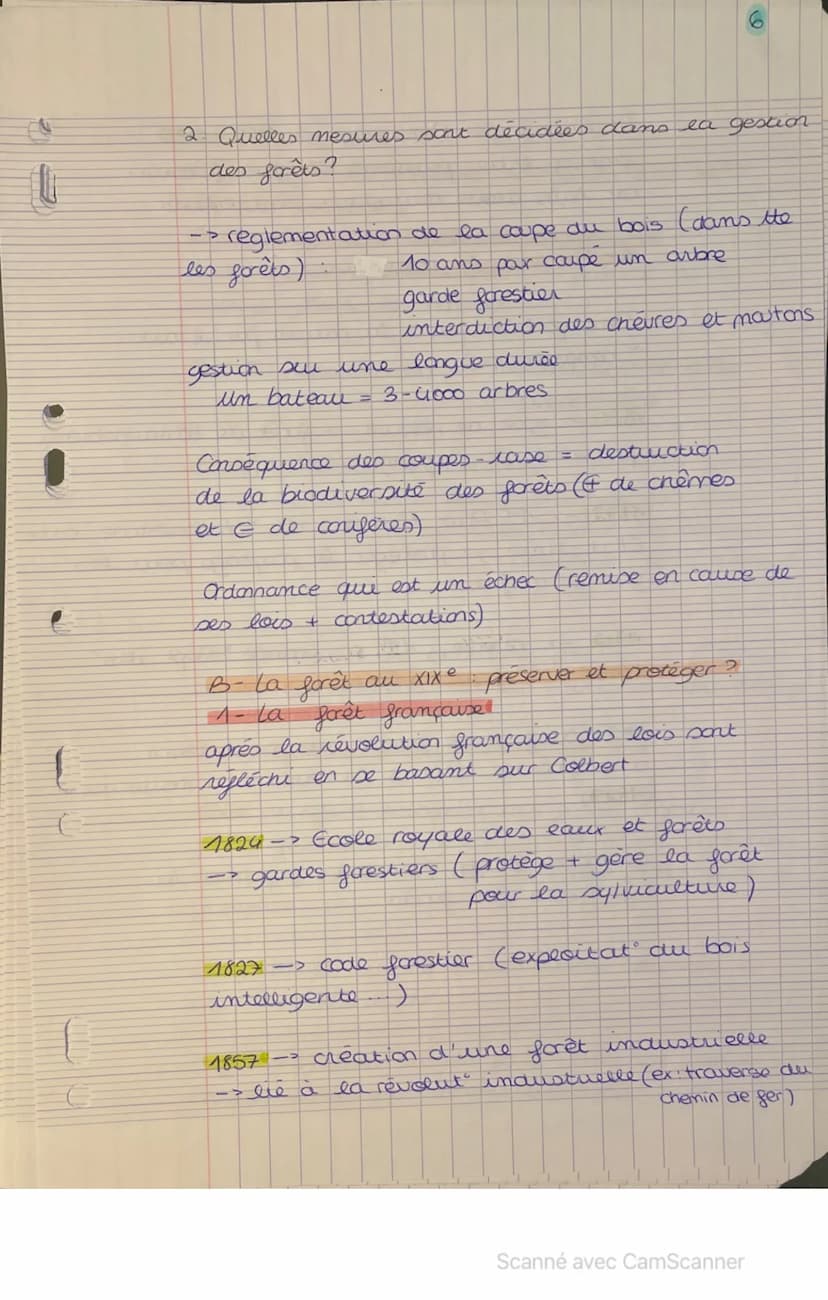 6
2. Quelles mesures sont décidées dans la gestion
des forêts?
-> reglementation de la coupe du bois (dans tte
les forêts) : 10 ans par coupé un arbre
garde forestier
interdiction des chèvres et moutons
gestion sur une longue durée
un bateau = 3-4000 arbres
Conséquence des coupes-rase = destruction
de la biodiversité des forêts (+ de chênes
et de conifères)
Ordonnance qui est un échec (remise en cause de
ses lois + contestations)
B- La forêt au XIXe : préserver et protéger ?
1- La forêt française
après la révolution française des lois sont
réfléchi en se basant sur Colbert
1824 -> Ecole royale des eaux et forêts
-> gardes forestiers (protège + gère la forêt
pour la sylviculture)
1827 -> code forestier (exploitat° du bois
intelligente ...)
1857 -> création d'une forêt industrielle
-> lié à la révolut° industrielle (ex: traverse du
chemin de fer)
Scanné avec CamScanner